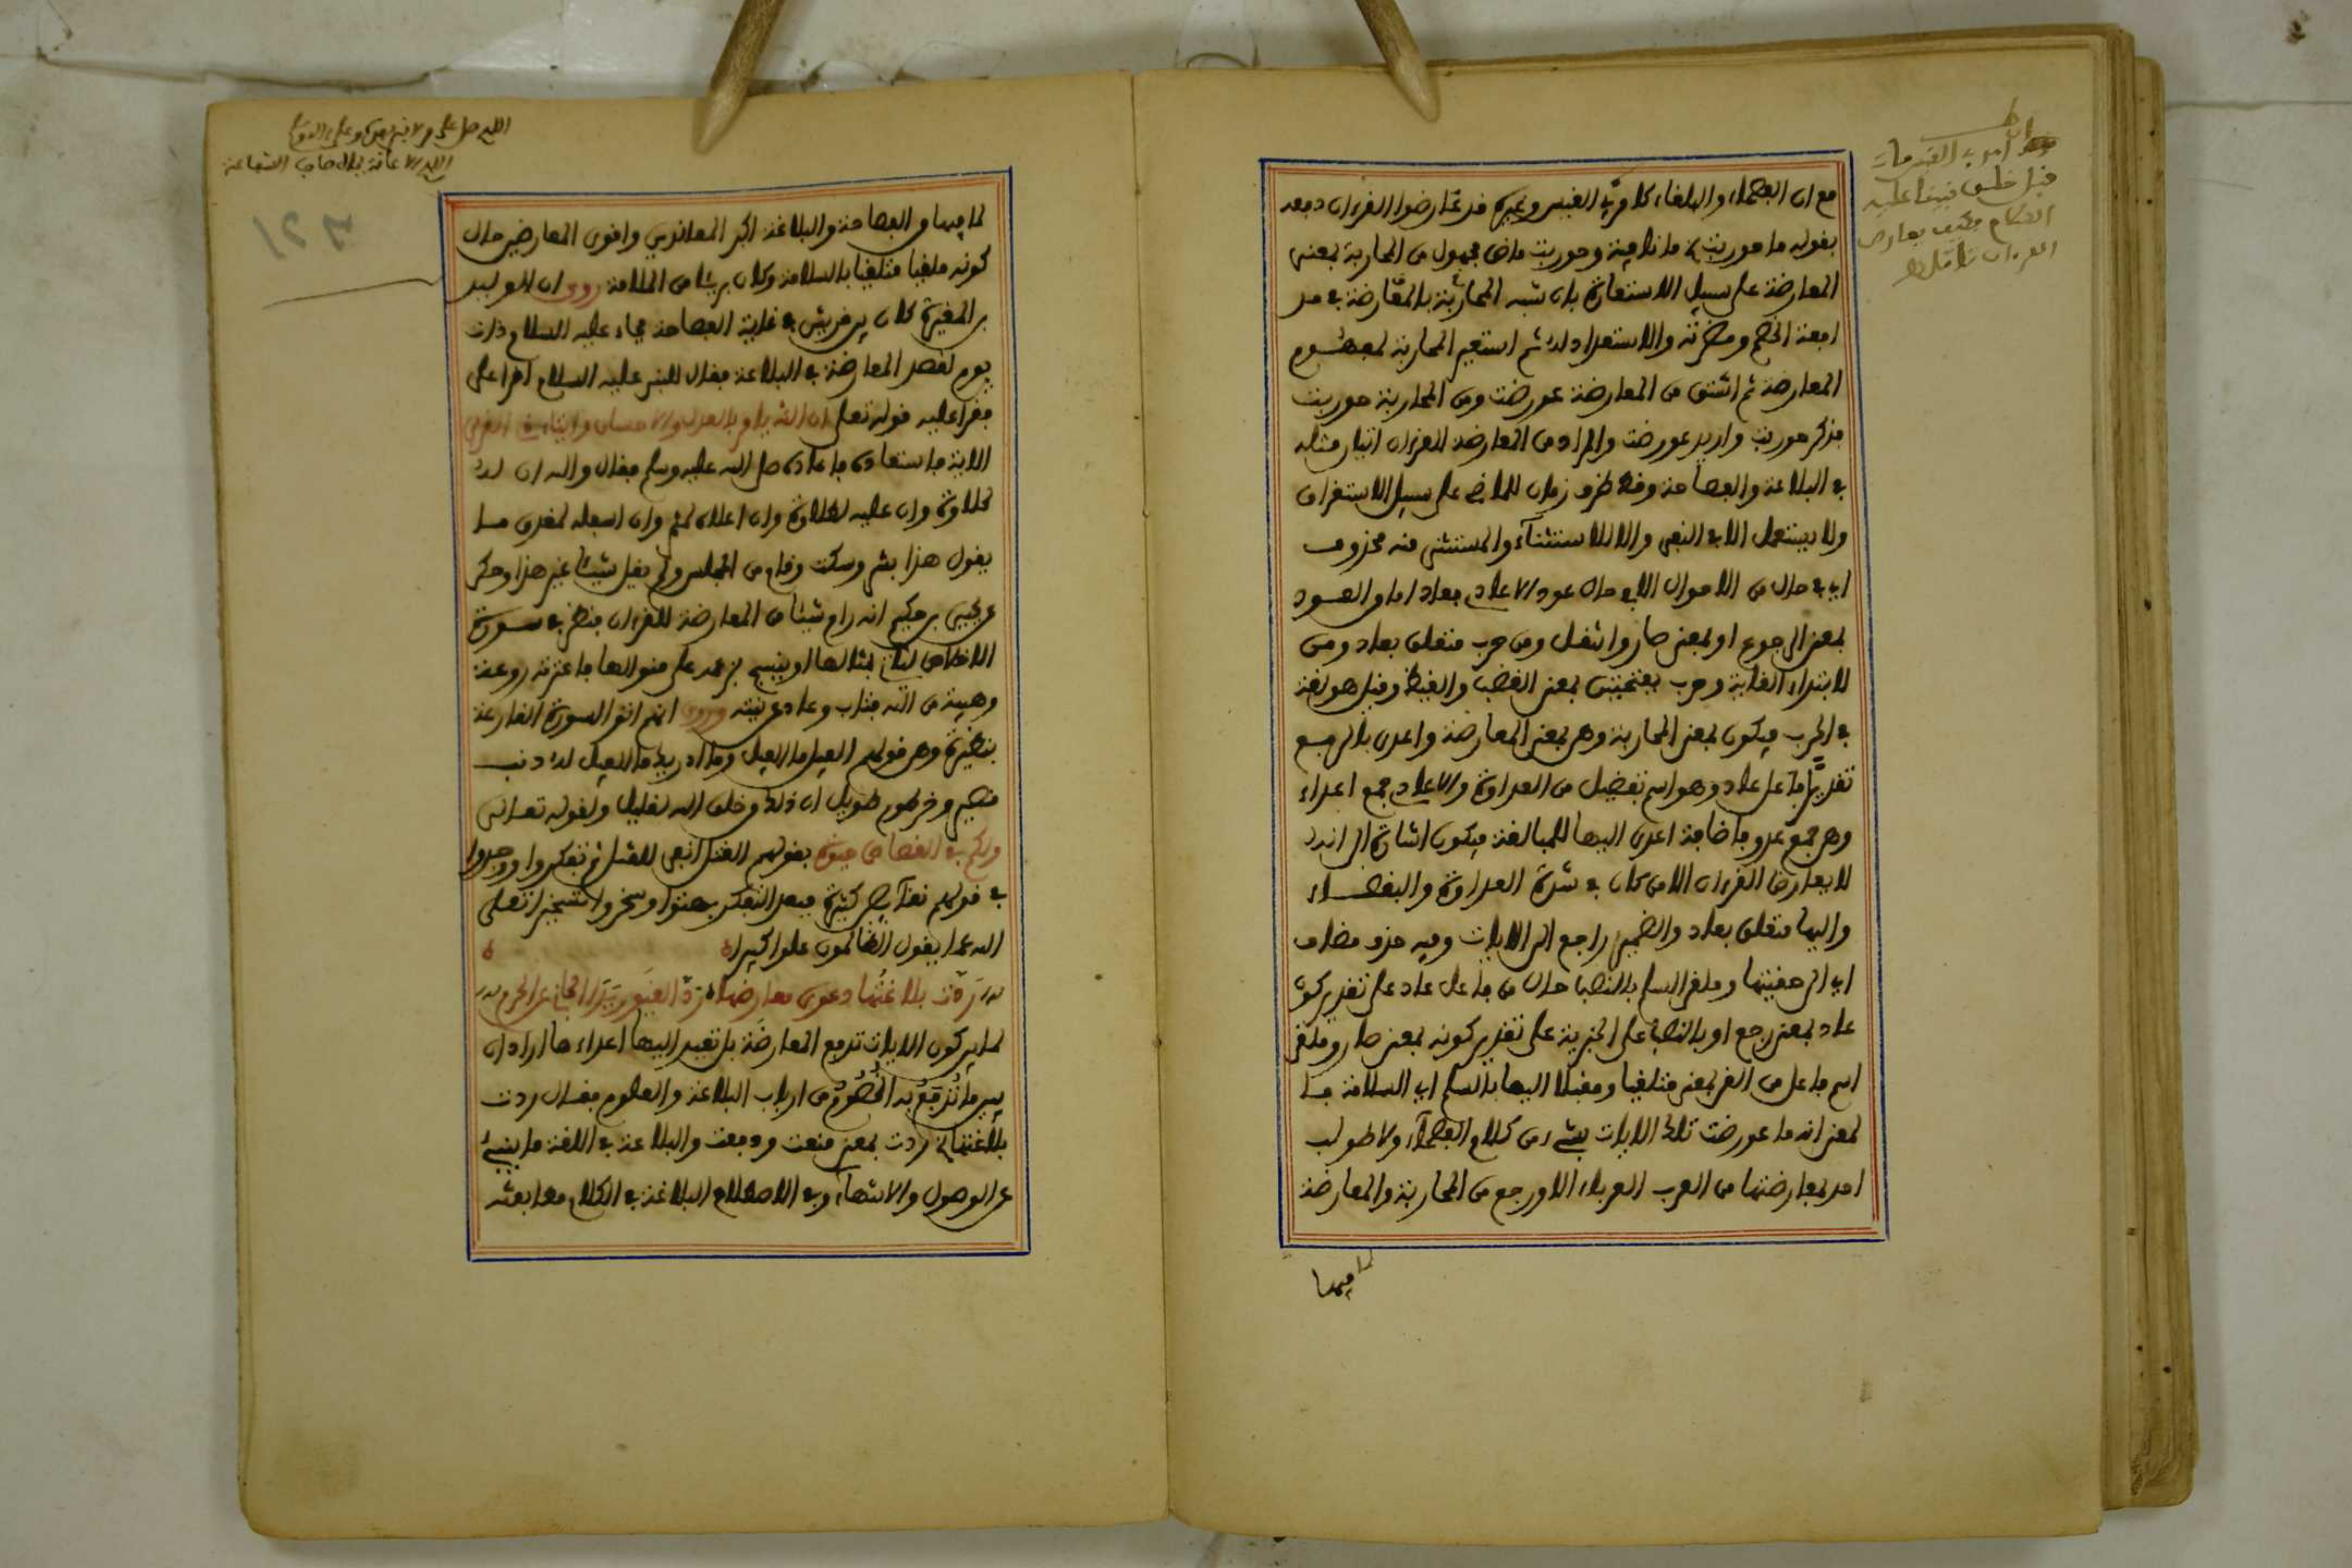 مع ان الفصحاء والبلغاء كامرئ القيس وغيره قد عارضوا القرءان دفعه
بقوله ما حوربت ما نافية وحوربت ماض مجهول من المحاربة بمعنى
المعارضة على سبيل الاستعارة بان شبه المحاربة بالمعارضة في
المعارضة ثم اشتق من المعارضة عورضت ومن المحاربة حوربت
فذكر حوربت واريد عورضت والمراد من المعارضة للقرءان اتيان مثله
في البلاغة والفصاحة وقط ظرف زمان للماضي على سبيل الاستغراق
ولا يستعمل الا في النفي والا للاستثناء والمستثنى منه محذوف
اي في حال من الاحوال الا في حال عود الاعادي فعاد اما من العود
بمعنى الرجوع او بمعنى صار وانتقل ومن حرب متعلق بعاد ومن
لابتداء الغاية وحرب بفتحتين بمعنى الغضب والغيظ وقيل هو لغة
في الحرب فيكون بمعنى المحاربة وهي بمعنى المعارضة واعدى بالرفع
تقديرا فاعل عاد وهو اسم تفضيل من العداوة والاعادي جمع اعداء
وهي جمع عدو فاضافة اعدى اليها للمبالغة فيكون اشارة الى انه
لا يعارض القرءان الا من كان في شدة العداوة والبغضاء
واليها متعلق بعاد والضمير راجع الى الايات وفيه حذف مضاف
اي الى حقيتها وملقي السلم بالنصب حال من فاعل عاد على تقدير كون
عاد بمعنى رجع او بالنصب على الخبرية على تقدير كونه بمعنى صار وملقي
اسم فاعل من القى بمعنى متلقيا ومقبلا اليها بالسلم اي السلامة
لمعنى انه ما عورضت تلك الايات بشيء من كلام الفصحاء ولا طولب
احد بمعارضتها من العرب العرباء الا ورجع من المحاربة والمعارضة
لما فيها
لما فيها من الفصاحة والبلاغة اكبر المعاندين واقوى المعارضين حال
كونه ملقيا متلقيا بالسلامة وكان بريئا من الملامة روي ان الوليد
بن المغيرة كان من قريش في غاية الفصاحة فجاء عليه السلام ذات
يوم لقصد المعارضة في البلاغة فقال للنبي عليه السلام اقرا علي
فقرا عليه قوله تعالى ان الله يامر بالعدل والاحسان وايتاء ذي القربى
الاية فاستعاده فاعاده صلى الله عليه وسلم فقال والله ان له
لحلاوة وان عليه لطلاوة وان اعلاه لمثمر وان اسفله لمغدق ما
يقول هذا بشر وسكت وقام من المجلس ولم يقل شيئا غير هذا وحكي
عن يحيى بن حكيم انه رام شيئا من المعارضة للقرءان فنظر في سورة
الاخلاص لياتي بمثالها او ينسج بزعمه على منوالها فاعترته روعة
وهيبة من الله فتاب وعاد عن نيته وروي انهم اتوا لسورة القارعة
بنظيرة وهي قولهم الفيل ما الفيل وما ادريك ما الفيل له ذنب
قصير وخرطوم طويل ان ذلك من خلق الله لقليل ولقوله تعالى
ولكم في القصاص حيوة بقولهم القتل انفى للقتل ثم تفكروا ووجدوا
في قولهم نقائص كثيرة فبعد التفكر بهتوا وسخروا تسخيرا تعالى
الله عما يقول الظالمون علوا كبيرا
ردت بلاغتها دعوى معارضها رد الغيور يد الجاني عن الحرم
لما بين كون الايات تدفع المعارضة بل تقيد اليها اعداءها اراد ان
يبين ما تدفع به الخصوم من ارباب البلاغة والعلوم فقال ردت
بلاغتها ردت بمعنى منعت ودفعت والبلاغة في اللغة ما ينبئ
عن الوصول والانتهاء وفي الاصطلاح البلاغة في الكلام مطابقته